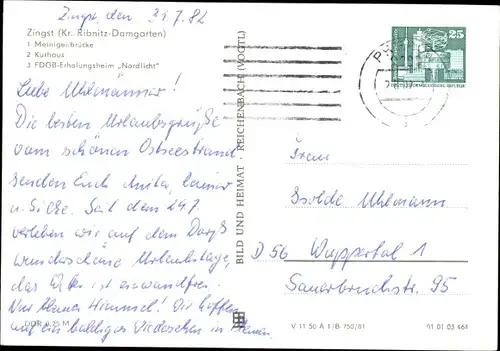 Zingst, den 31.7.82
Zingst (Kr. Ribnitz-Damgarten)
1 Meiningenbrücke
2 Kurhaus
3 FDGB-Erholungsheim „Nordlicht"
Liebe Uhlmänner!
Die besten Urlaubsgrüße
vom schönen Ostseestrand
senden Euch Anita,
u. Silke. Seit dem 24.7
verleben wir auf dem Darß
wunderschöne Urlaubstage,
das ist einwandfrei.
Nur blauer Himmel! Wir hoffen
auf ein baldiges Wiedersehen in
DDR 0,25 M
BILD UND HEIMAT · REICHENBACH (VOGTL)
25
Frau
Isolde Uhlmann
D 56 Wuppertal 1
Sauerbruchstr. 95
V 11 50 A 1/B 750/81
01 01 03 464